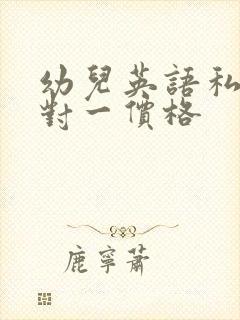 幼兒英語私
對一價格
鹿寧蕭